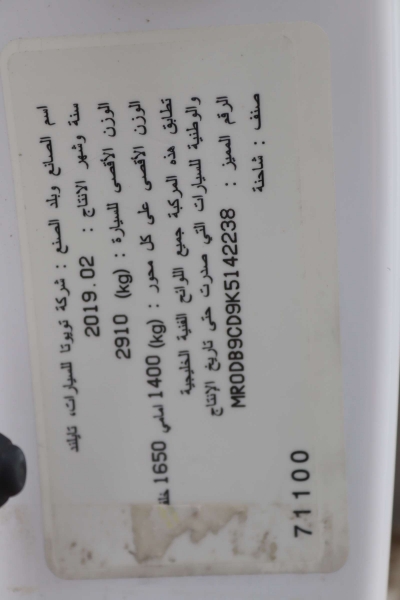 اسم الصانع وبلد الصنع : شركة تويوتا للسيارات، تايلند
سنة وشهر الانتاج : 2019.02
الوزن الأقصى للسيارة : (kg) 2910
الوزن الأقصى على كل محور : (kg) 1400 امامي 1650
تطابق هذه المركبة جميع اللوائح الفنية الخليجية
والوطنية للسيارات التي صدرت حتى تاريخ الإنتاج
الرقم المميز : MR0DB9CD9K5142238
صنف : شاحنة
71100